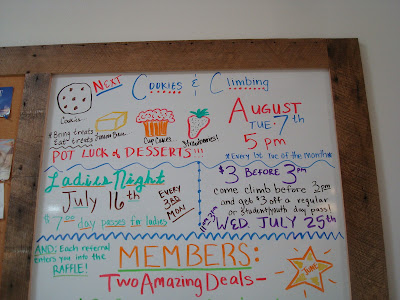 NEXT COOKIES & CLIMBING
Cookies
Cup Cakes
Strawberries!
* Bring treats
Eat treats
POT LUCK of DESSERTS!!!
AUGUST
TUE. 7th
5 pm
*Every 1st Tue of the month*
Ladies Night
July 16th
EVERY
3RD
MON
$7.00 day passes for ladies
$3 BEFORE 3PM
come climb before 3pm
and get $3 off a regular
or Student/youth day pass!
WED. JULY 25th
AND: Each referral
enters you into the
RAFFLE!
MEMBERS:
Two Amazing Deals-